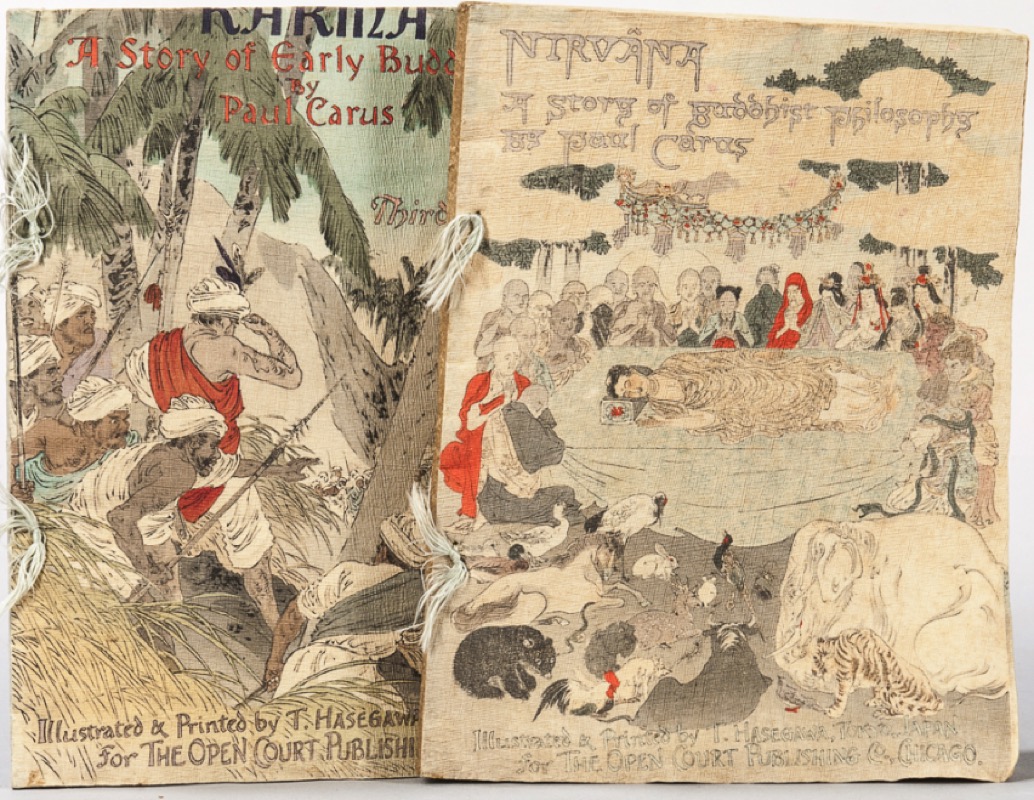 KARMA
A Story of Early Budd
By
Paul Carus
Third
Illustrated & Printed by T. HASEGAWA
for THE OPEN COURT PUBLISHI
NIRVÂNA
A Story of Buddhist Philosophy
By Paul Carus
Illustrated & Printed by T. HASEGAWA, TOKYO, JAPAN
for THE OPEN COURT PUBLISHING Co, CHICAGO.